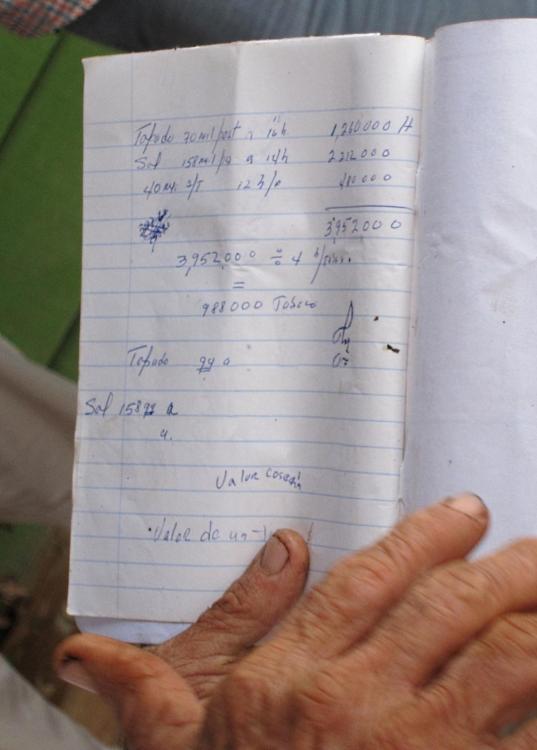 Tapado 90mil/post a 14h 1,260000
Sol 158mil/a a 14/h 2212000
40mi s/T 12 h/a 480000
3,952000
3,952,000 ÷ 4
=
988000 Tabaco
Tapado qq a
Sol 158qq a
4.
Valor cosecha
Valor de un